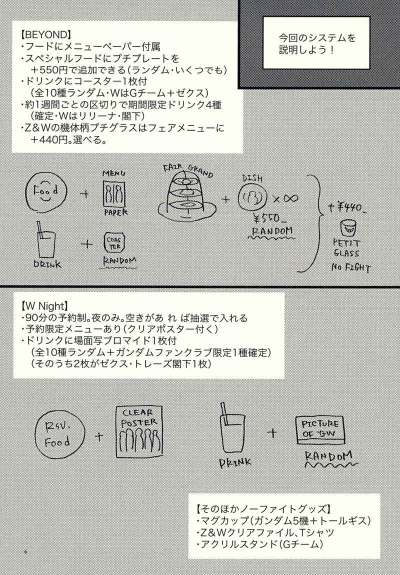 今回のシステムを
説明しよう！
【BEYOND】
・フードにメニューペーパー付属
・スペシャルフードにプチプレートを
＋550円で追加できる（ランダム・いくつでも）
・ドリンクにコースター1枚付
（全10種ランダム・WはGチーム＋ゼクス）
・約1週間ごとの区切りで期間限定ドリンク4種
（確定・Wはリリーナ・閣下）
・Z＆Wの機体柄プチグラスはフェアメニューに
＋440円。選べる。
Food
+
MENU
PAPER
FAIR GRAND
+
DISH
×∞
¥550_
RANDOM
+¥440_
PETIT
GLASS
NO FIGHT
DRINK
+
COAS
TER
RANDOM
【W Night】
・90分の予約制。夜のみ。空きがあ れ ば抽選で入れる
・予約限定メニューあり（クリアポスター付く）
・ドリンクに場面写ブロマイド1枚付
（全10種ランダム＋ガンダムファンクラブ限定1種確定）
（そのうち2枚がゼクス・トレーズ閣下1枚）
RSV.
Food
+
CLEAR
POSTER
DRINK
+
PICTURE
OF GW
RANDOM
【そのほかノーファイトグッズ】
・マグカップ（ガンダム5機＋トールギス）
・Z＆Wクリアファイル、Tシャツ
・アクリルスタンド（Gチーム）